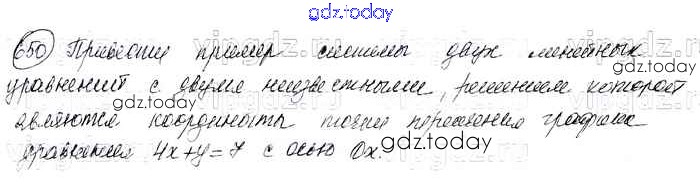 gdz.today
650 Привести пример системы двух линейных
gdz.today
уравнений с двумя неизвестными, решением которой
gdz.today
являются координаты точки пересечения графика
gdz.today
уравнения 4x+y=7 с осью Ox.